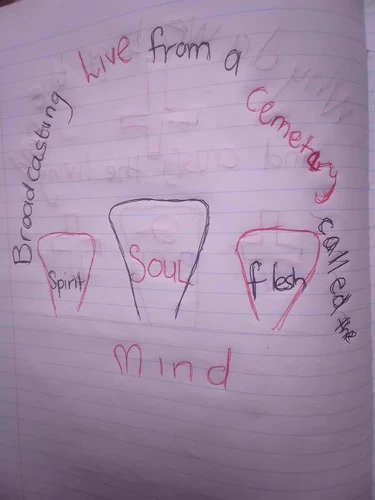 Broadcasting Live from a Cemetary called the
Spirit
SOUL
flesh
Mind